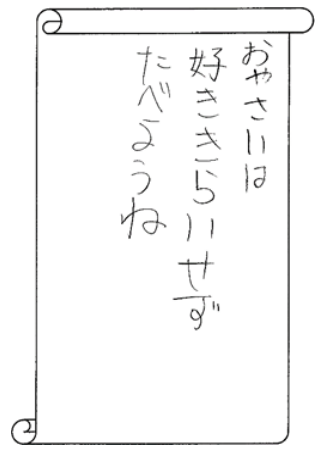 おやさいは
好ききらいせず
たべようね